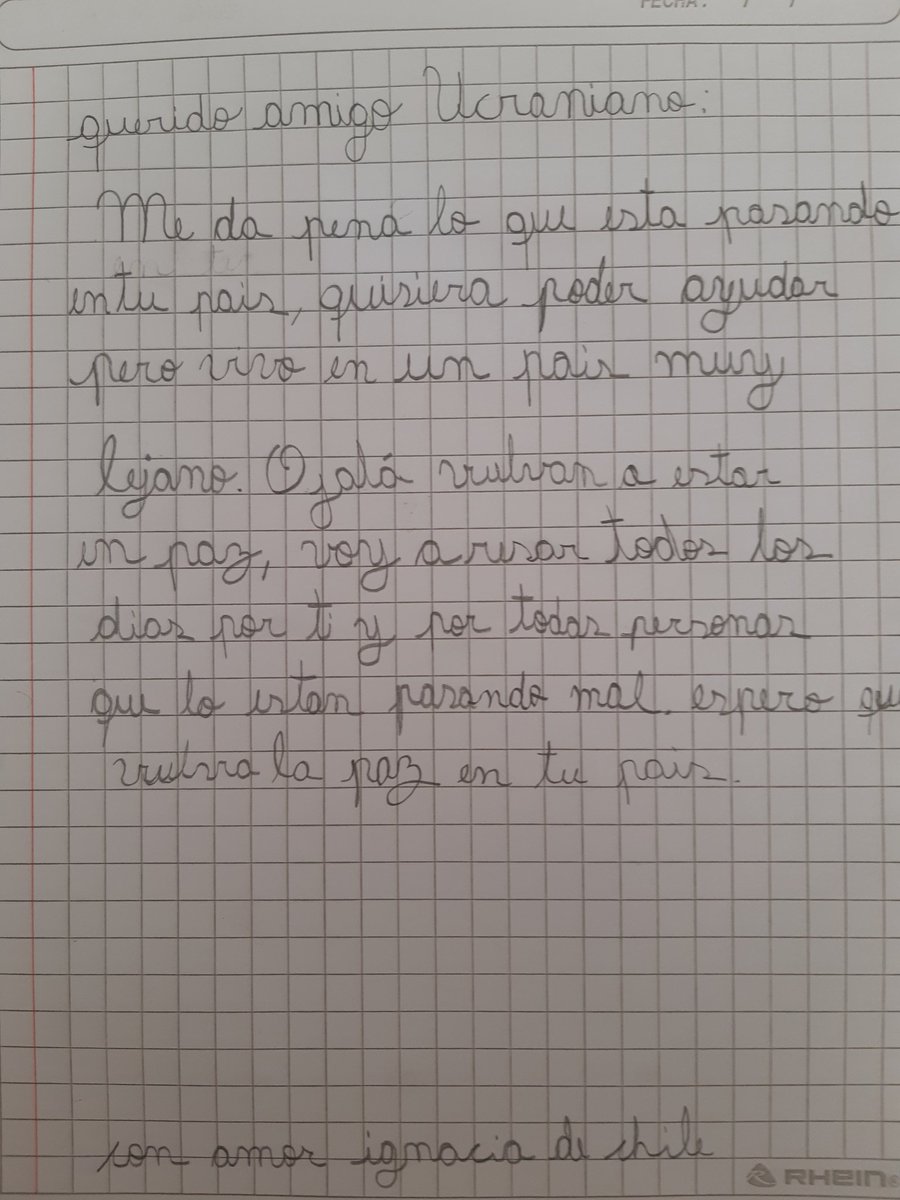 FECHA: / /
querido amigo Ucraniano:
Me da pena lo que esta pasando
en tu pais, quisiera poder ayudar
pero vivo en un pais muy
lejano. Ojalá vuelvan a estar
en paz, voy a resar todos los
dias por ti y por todas personas
que lo estan pasando mal. espero qu
vuelva la paz en tu pais.
con amor ignacia de chile
RHEIN